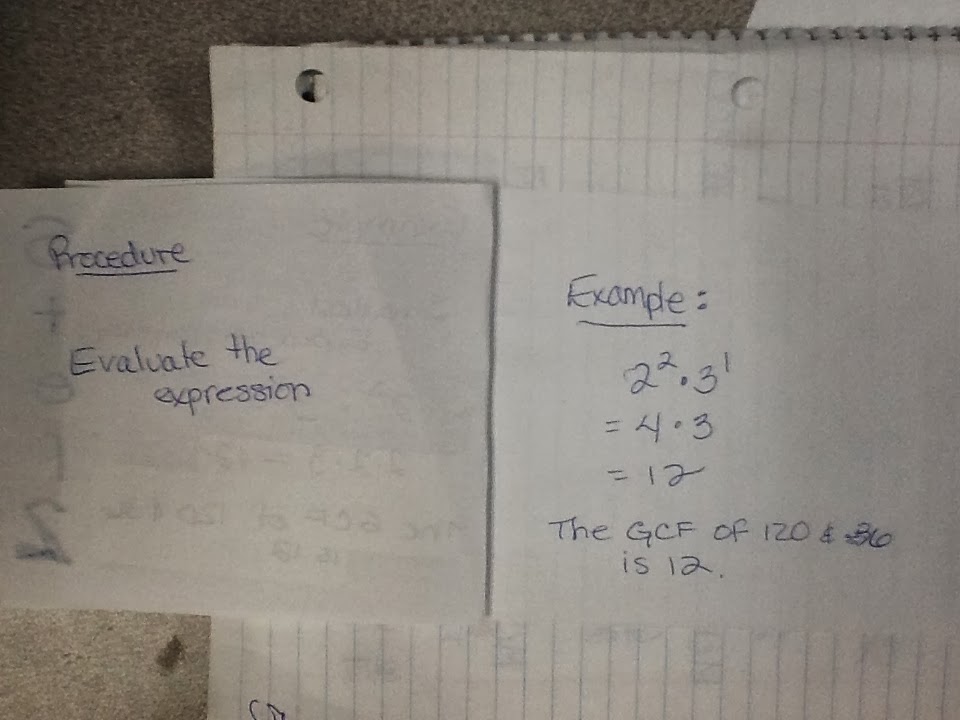 Procedure
Evaluate the
expression
Example:
2²·3¹
= 4·3
= 12
The GCF of 120 & 36
is 12.